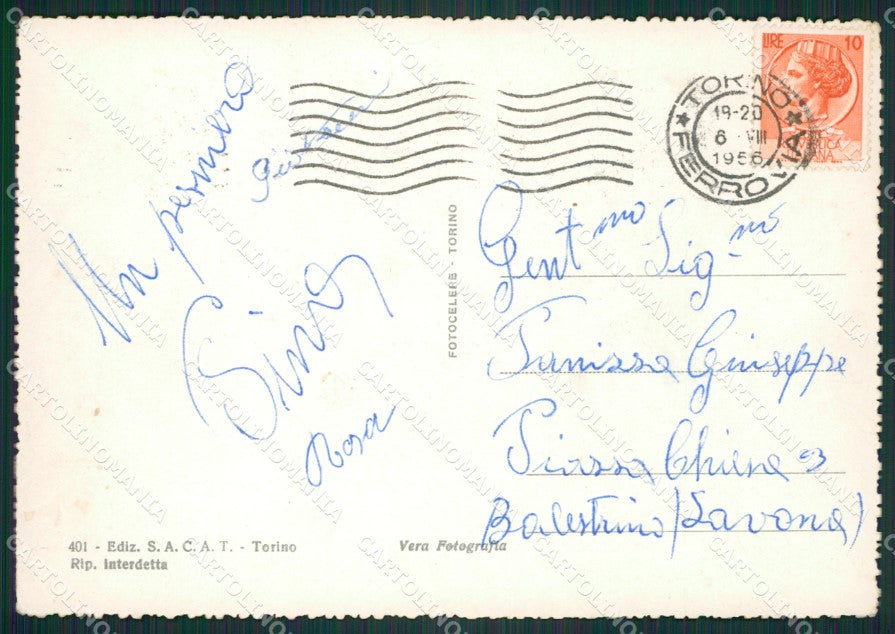 Un pensiero
Gina
Rosa
LIRE 10
TORINO
18-20
6 · VIII
1956
FERROVIA
FOTOCELERE - TORINO
Gent.mo Sig.no
Panizza Giuseppe
Piazza Chiesa 3
Balestrino (Savona)
401 - Ediz. S. A. C. A. T. - Torino
Rip. Interdetta
Vera Fotografia
CARTOLINOMANIA